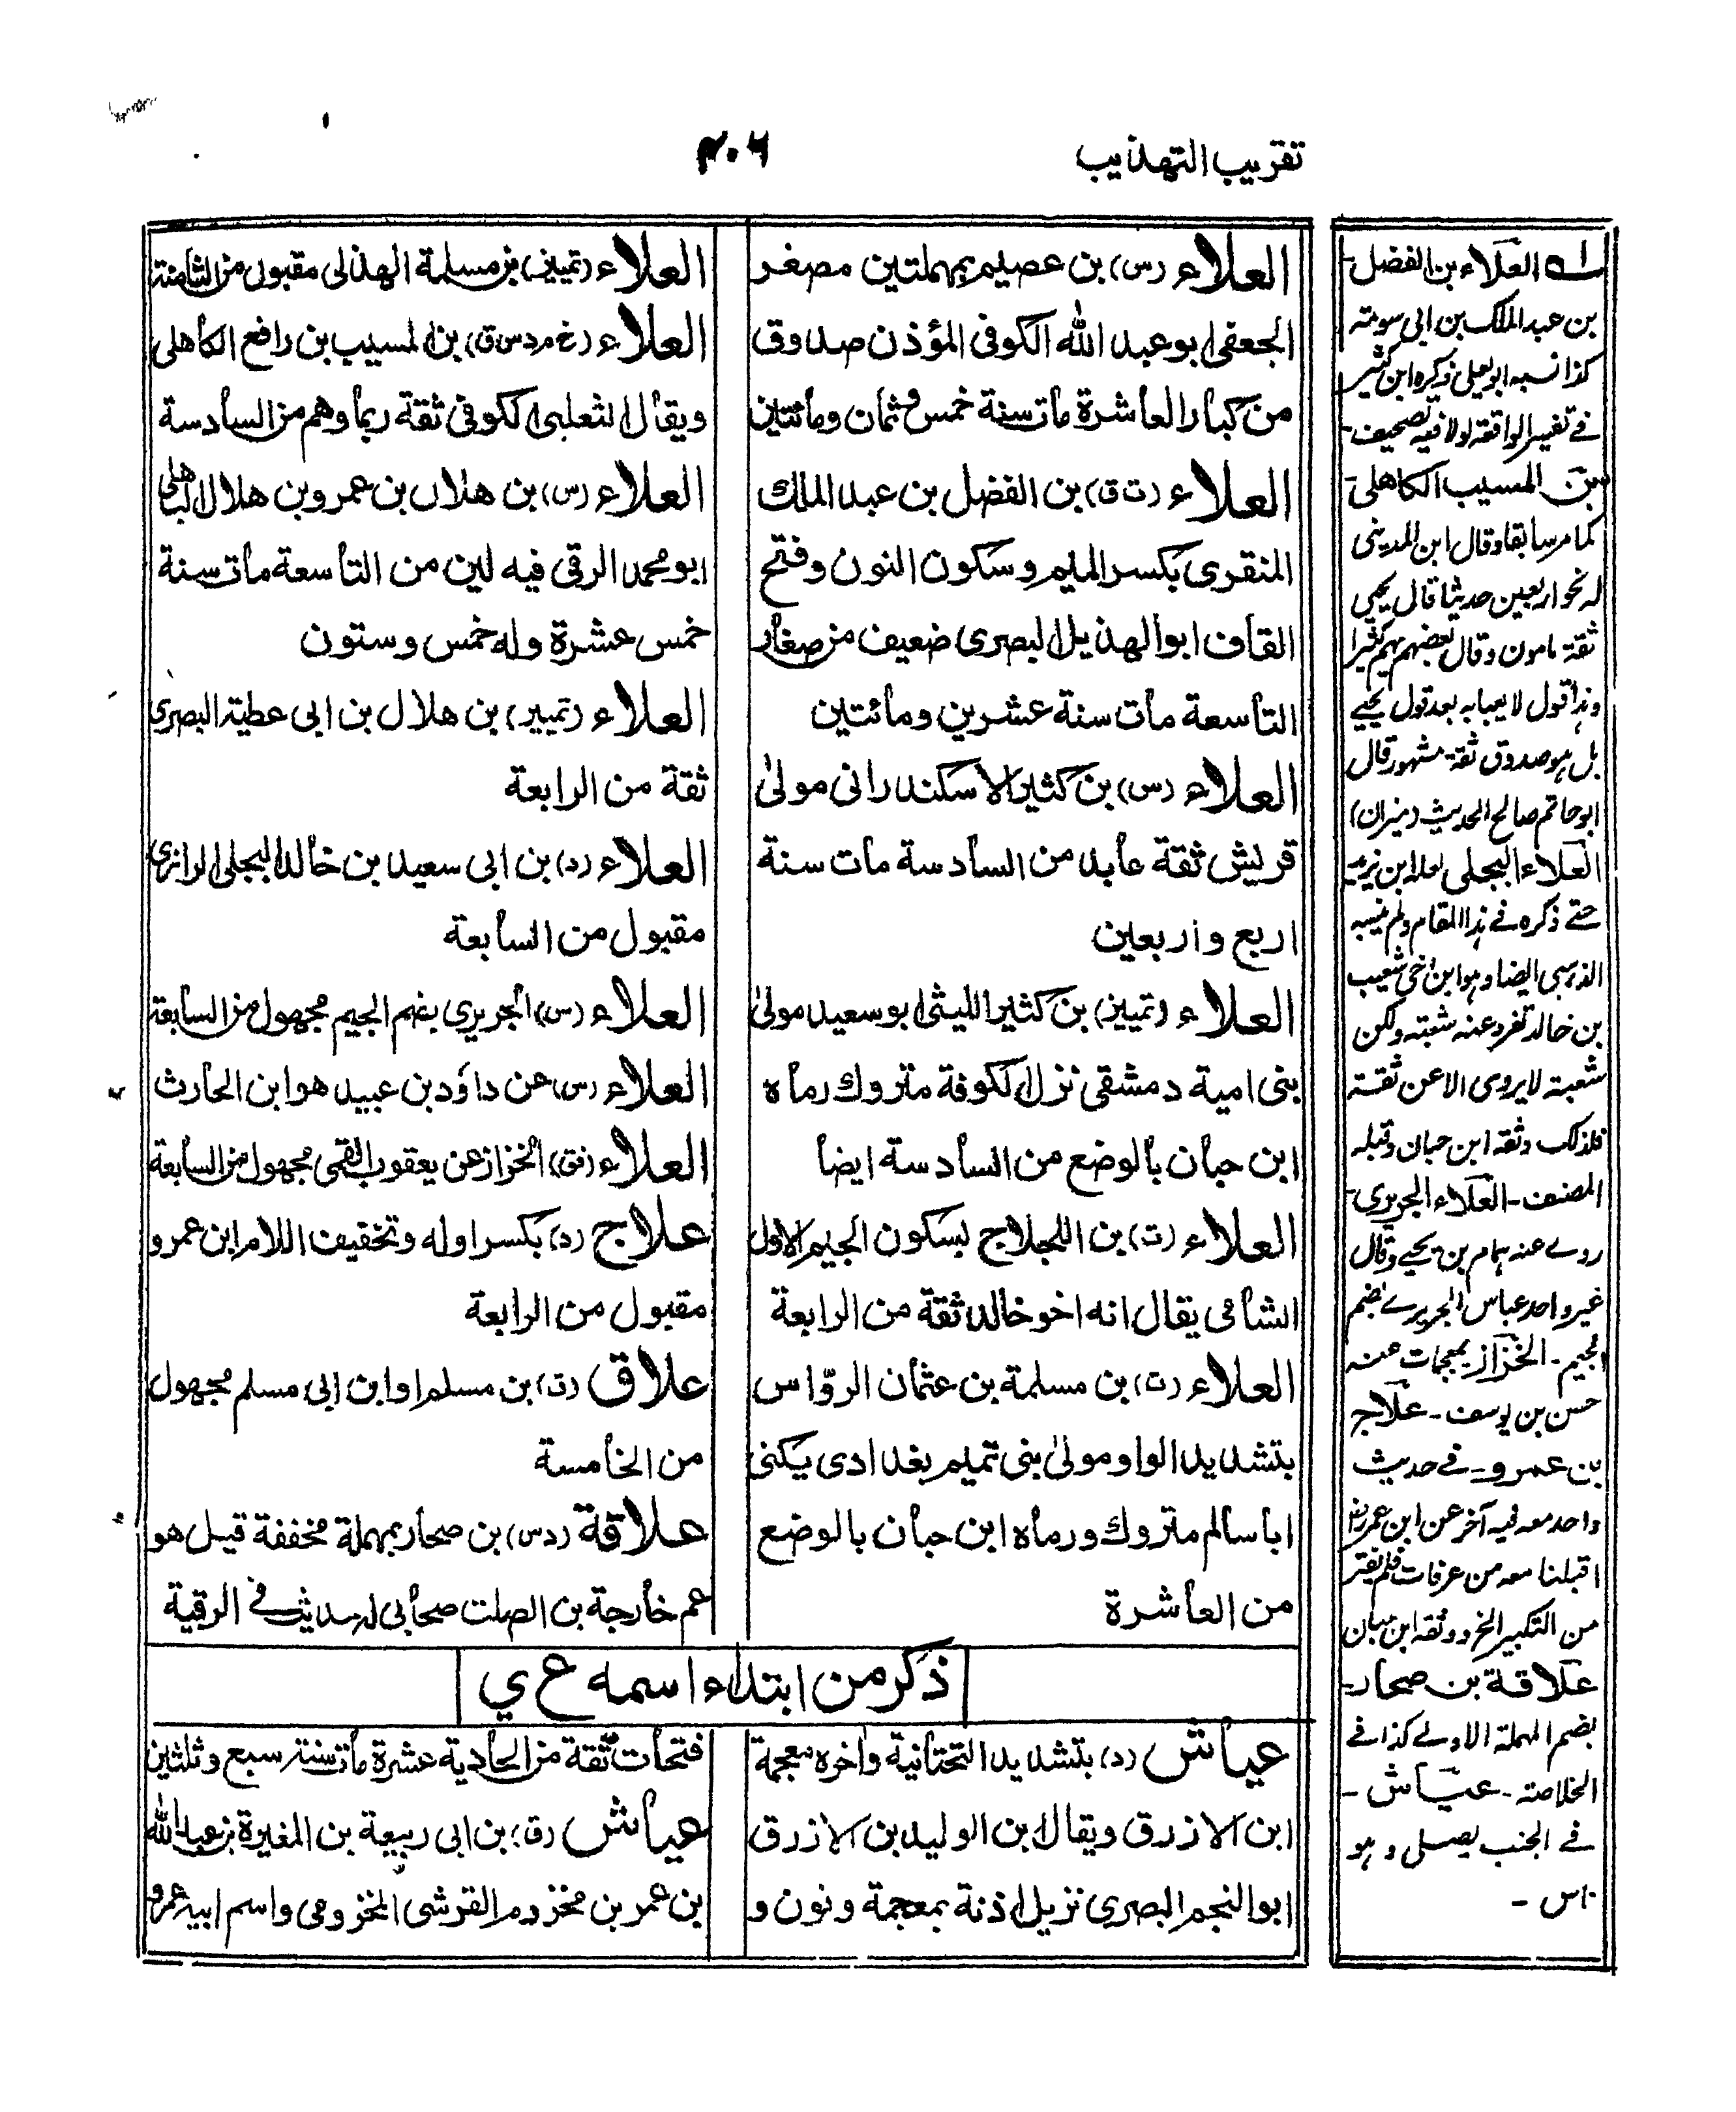 تقريب التهذيب
٤٠٦
العلاء (س) بن عصيم بمهملتين مصغر
الجعفي ابو عبد الله الكوفي المؤذن صدوق
من كبار العاشرة مات سنة خمس وثمان ومائتين
العلاء (ت ق) بن الفضل بن عبد الملك
المنقري بكسر الميم وسكون النون وفتح
القاف ابو الهذيل البصري ضعيف من صغار
التاسعة مات سنة عشرين ومائتين
العلاء (س) بن كثير الاسكندراني مولىٰ
قريش ثقة عابد من السادسة مات سنة
اربع واربعين
العلاء (تمييز) بن كثير الليثي ابو سعيد مولىٰ
بني امية دمشقي نزل الكوفة متروك رماه
ابن حبان بالوضع من السادسة ايضا
العلاء (ت) بن اللجلاج بسكون الجيم الاول
الشامي يقال انه اخو خالد ثقة من الرابعة
العلاء (ت) بن مسلمة بن عثمان الروّاس
بتشديد الواو مولىٰ بني تميم بغدادي يكنى
ابا سالم متروك ورماه ابن حبان بالوضع
من العاشرة
العلاء (تمييز) بن مسلمة الهذلي مقبول من الثامنة
العلاء (خ م د س ق) بن المسيب بن رافع الكاهلي
ويقال الثعلبي الكوفي ثقة ربما وهم من السادسة
العلاء (س) بن هلال بن عمرو بن هلال الباهلي
ابو محمد الرقي فيه لين من التاسعة مات سنة
خمس عشرة وله خمس وستون
العلاء (تمييز) بن هلال بن ابي عطية البصري
ثقة من الرابعة
العلاء (د) بن ابي سعيد بن خالد البجلي الرازي
مقبول من السابعة
العلاء (س) الجريري بضم الجيم مجهول من السابعة
العلاء (س) عن داؤد بن عبيد هو ابن الحارث
العلاء (فق) الخزاز عن يعقوب القمي مجهول من السابعة
علاج (د) بكسر اوله وتخفيف اللام ابن عمرو
مقبول من الرابعة
علاق (ق) بن مسلم او ابن ابي مسلم مجهول
من الخامسة
علاقة (د س) بن صحار بمهملة مخففة قيل هو
عم خارجة بن الصلت صحابي له حديث في الرقية
ذكر من ابتداء اسمه ع ي
عياش (د) بتشديد التحتانية وآخره معجمة
ابن الازرق ويقال ابن الوليد بن الازرق
ابو النجم البصري نزيل اذنة بمعجمة ونون و
فتحات ثقة من الحادية عشرة مات سنة سبع وثلثين
عياش (ق) بن ابي ربيعة بن المغيرة بن عبد الله
بن عمر بن مخزوم القرشي المخزومي واسم ابيه عمرو
له العلاء بن الفضل-
بن عبد الملك بن ابي سوية
كذا نسبه ابو يعلى ذكره ابن كثير
في تفسير الواقعة اولا فيه تصحيف-
بن المسيب الكاهلي-
كما مر سابقا وقال ابن المديني
له نحو اربعين حديثا قال يحيى
ثقة مامون وقال بعضهم يهم كثيرا
وهذا قول لا يعبا به بعد قول يحيي
بل هو صدوق ثقة مشهور قال
ابو حاتم صالح الحديث (ميزان)
العلاء البجلي لعله ابن يزيد
حتے ذكره في هذا المقام ولم ينسبه
الذهبي ايضا وهو ابن اخي شعيب
بن خالد تفرد عنه شعبة ولكن
شعبة لا يروي الا عن ثقة
فلذلك وثقه ابن حبان وقبله
المصنف - العلاء الجريري-
روے عنه همام بن يحيے وقال
غير واحد عباس الجريرے بضم
الجيم - الخزاز بمعجمات عنه
حسن بن يوسف - علاج
بن عمرو - في حديث
واحد معه فيه آخر عن ابن عمر رض
اقبلنا معه من عرفات فلم يفتر
من التكبير الخ ووثقه ابن حبان
علاقة بن صحار-
بضم المهملة الاولے كذا في
الخلاصة - عيّاش -
في الجنب يصلي وهو
ناس -